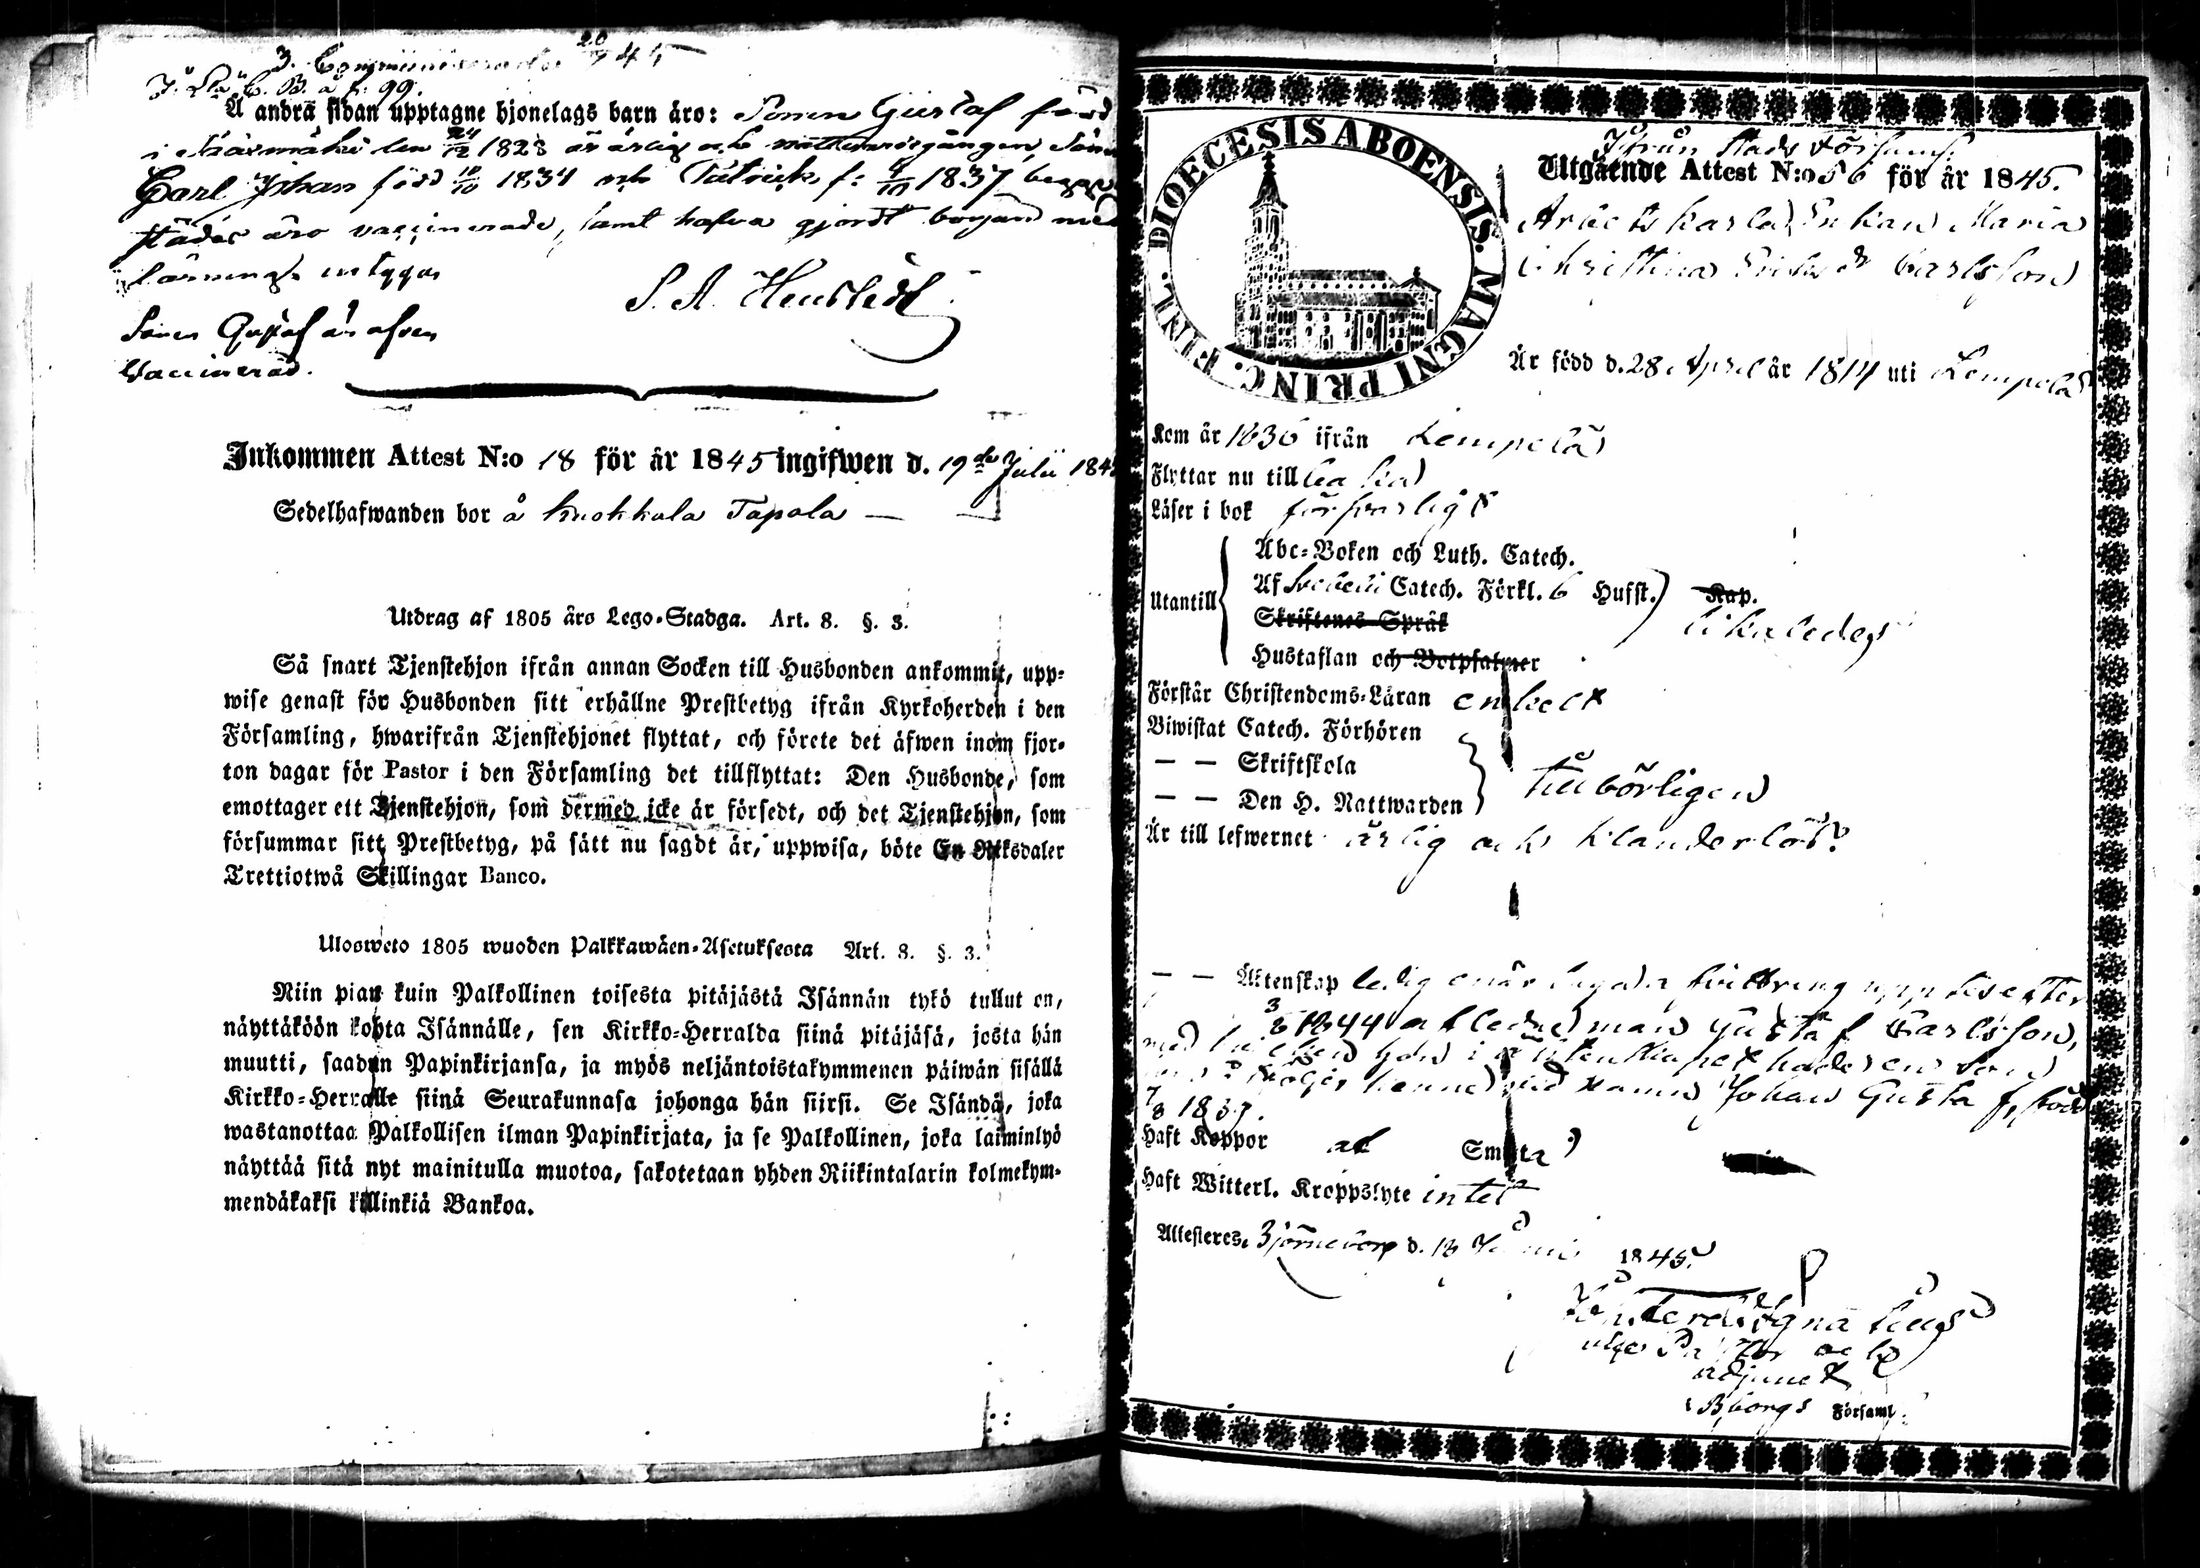 3. Communicerade 20/7 45
J. L. C. B. a f. 99.
Å andra sidan upptagne hjonelags barn äro: Sonen Gustaf född
i den 24/12 1828 är ärlig och nattvardsgången, Sönerna
Carl Johan född 10/10 1834 och f: 4/10 1837 begge
städes äro vaccinerade, samt hafva gjordt början med
S. A.
Sonen Gustaf är äfven
Vaccinerad.
Inkommen Attest N:o 18 för år 1845 ingifwen d. 19de Julii 184
Sedelhafwanden bor å Kuokkala Tapola —
Utdrag af 1805 års Lego-Stadga. Art. 8. §. 3.
Så snart Tjenstehjon ifrån annan Socken till Husbonden ankommit, upp-
wise genast för Husbonden sitt erhållne Prestbetyg ifrån Kyrkoherden i den
Församling, hwarifrån Tjenstehjonet flyttat, och förete det äfwen inom fjor-
ton dagar för Pastor i den Församling det tillflyttat: Den Husbonde, som
emottager ett Tjenstehjon, som dermed icke är försedt, och det Tjenstehjon, som
försummar sitt Prestbetyg, på sätt nu sagdt är, uppwisa, böte En Riksdaler
Trettiotwå Skillingar Banco.
Ulosweto 1805 wuoden Palkkawäen-Asetuksesta Art. 8. §. 3.
Niin pian kuin Palkollinen toisesta pitäjästä Isännän tykö tullut on,
näyttäköön kohta Isännälle, sen Kirkko-Herralda siinä pitäjäsä, josta hän
muutti, saadun Papinkirjansa, ja myös neljäntoistakymmenen päiwän sisällä
Kirkko-Herralle siinä Seurakunnasa johonga hän siirsi. Se Isändä, joka
wastanottaa Palkollisen ilman Papinkirjata, ja se Palkollinen, joka laiminlyö
näyttää sitä nyt mainitulla muotoa, sakotetaan yhden Riikintalarin kolmekym-
mendäkaksi killinkiä Bankoa.
DIOECESIS ABOENSIS. MAGNI PRINC. FINL.
Ifrån Stads Församl.
Utgående Attest N:o 56 för år 1845.
Arbetskarls Enkan Maria
Christina Carlsson
Är född d. 28 April år 1814 uti Lempelä
Kom år 1836 ifrån Lempelä
Flyttar nu till
Läser i bok försvarligt
Utantill
Abc-Boken och Luth. Catech.
Af Svebelii Catech. Förkl. 6 Hufst. Kap.
Skriftenes Språk
likaledes
Hustaflan och Botpsalmer
Förstår Christendoms-Läran enkelt
Biwistat Catech. Förhören
— — Skriftskola
— — Den H. Nattwarden
tillbörligen
Är till lefwernet ärlig och klanderlös.
— — Äktenskap ledig enär laga skiftning upp efter
3/8 1844 afledne man Gustaf Carlsson,
med hvilken hon i äktenskapet hade en son
som följer henne vid namn Johan Gustaf, född
7/8 1837.
Haft Koppor af Smitta
Haft Witterl. Kroppslyte intet
Attesteres, Björneborg d. 18 Junii 1845.
Pastor och
adjunct
Bborgs Församl.